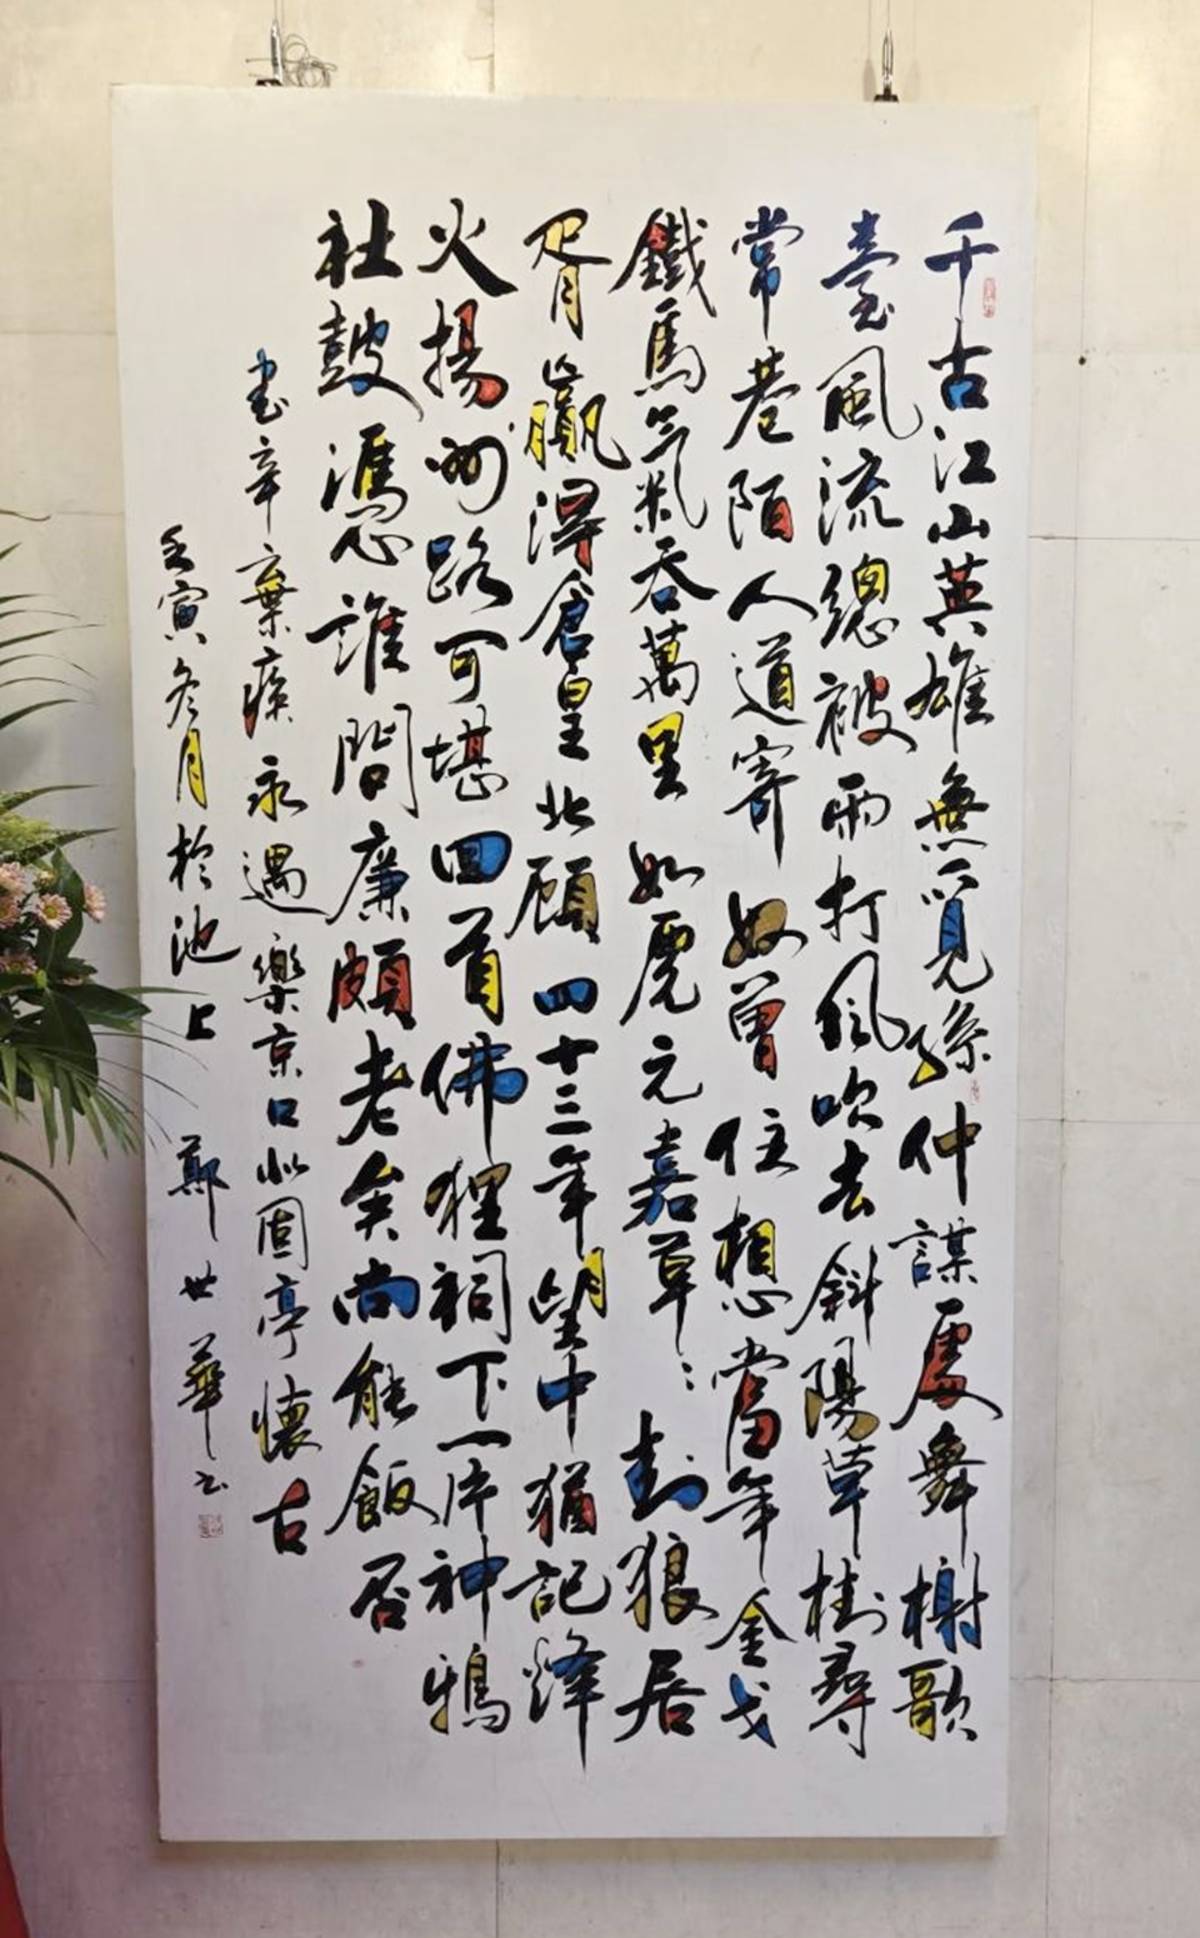 千古江山英雄無覓孫仲謀處舞榭歌
臺風流總被雨打風吹去斜陽草樹尋
常巷陌人道寄奴曾住想當年金戈
鐵馬氣吞萬里如虎元嘉草〻封狼居
胥贏得倉皇北顧四十三年望中猶記烽
火揚州路可堪回首佛狸祠下一片神鴉
社鼓憑誰問廉頗老矣尚能飯否
書辛棄疾永遇樂京口北固亭懷古
壬寅冬月於池上鄭世華書